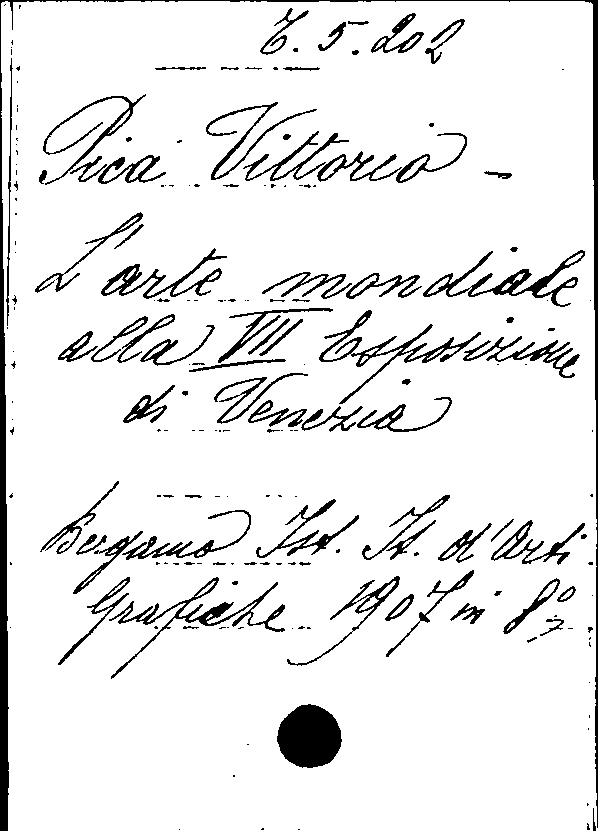 6.5.202
Pica Vittorio -
L'arte mondiale
alla VII Esposizione
di Venezia
Bergamo Ist. It. d'Arti
Grafiche 1907 in 8º